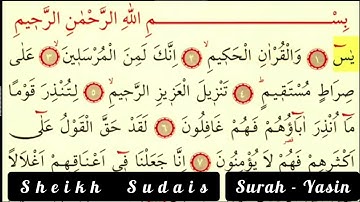 بِسْمِ اللهِ الرَّحْمٰنِ الرَّحِيْمِ
يٰسٓ ﴿١﴾ وَالْقُرْاٰنِ الْحَكِيْمِ ﴿٢﴾ اِنَّكَ لَمِنَ الْمُرْسَلِيْنَ ﴿٣﴾ عَلٰى
صِرَاطٍ مُسْتَقِيْمٍ ﴿٤﴾ تَنْزِيْلَ الْعَزِيْزِ الرَّحِيْمِ ﴿٥﴾ لِتُنْذِرَ قَوْمًا
مَٓا اُنْذِرَ اٰبَٓاؤُ۬هُمْ فَهُمْ غَافِلُوْنَ ﴿٦﴾ لَقَدْ حَقَّ الْقَوْلُ عَلٰٓى
اَكْثَرِهِمْ فَهُمْ لَا يُؤْمِنُوْنَ ﴿٧﴾ اِنَّا جَعَلْنَا فٖٓى اَعْنَاقِهِمْ اَغْلَالًا
Sheikh Sudais
Surah - Yasin